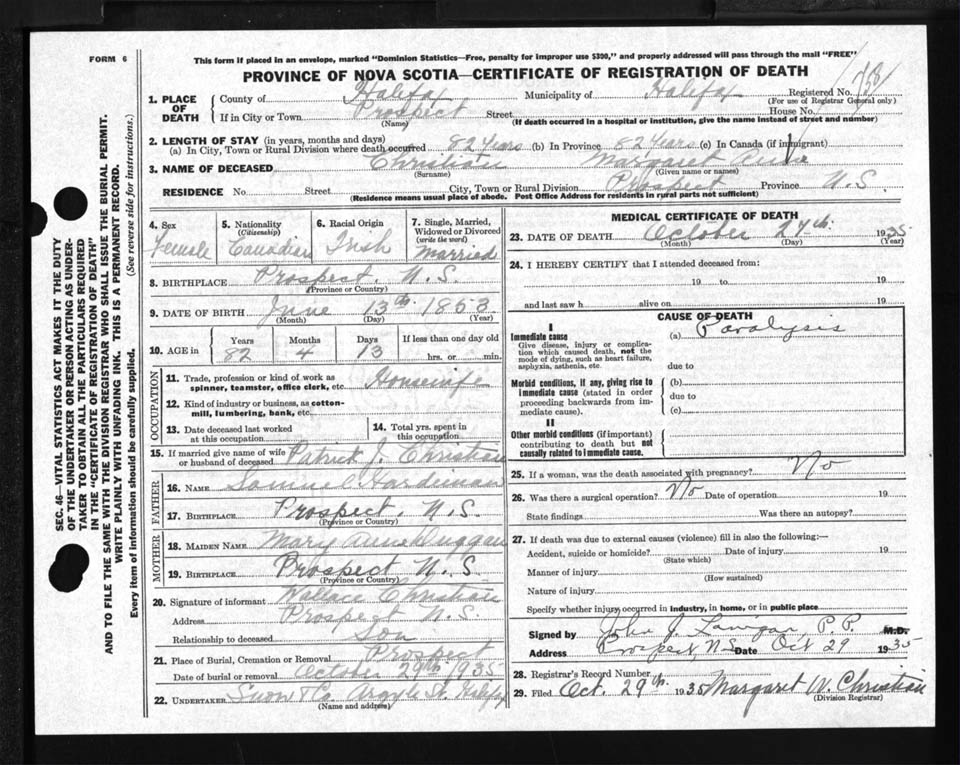 FORM 6
This form if placed in an envelope, marked "Dominion Statistics—Free, penalty for improper use $300," and properly addressed will pass through the mail "FREE"
PROVINCE OF NOVA SCOTIA—CERTIFICATE OF REGISTRATION OF DEATH
1. PLACE OF DEATH
County of Halifax Municipality of Halifax Registered No.
(For use of Registrar General only)
If in City or Town Prospect Street House No.
(Name) (If death occurred in a hospital or institution, give the name instead of street and number)
2. LENGTH OF STAY (in years, months and days)
(a) In City, Town or Rural Division where death occurred 82 years (b) In Province 82 years (c) In Canada (if immigrant)
3. NAME OF DECEASED Christian Margaret Anne
(Surname) (Given name or names)
RESIDENCE No. Street City, Town or Rural Division Prospect Province N.S.
(Residence means usual place of abode. Post Office Address for residents in rural parts not sufficient)
4. Sex Female
5. Nationality (Citizenship) Canadian
6. Racial Origin Irish
7. Single, Married, Widowed or Divorced (write the word) Married
8. BIRTHPLACE Prospect, N.S.
(Province or Country)
9. DATE OF BIRTH June 13th 1853
(Month) (Day) (Year)
10. AGE in Years 82 Months 4 Days 13 If less than one day old hrs. or min.
OCCUPATION
11. Trade, profession or kind of work as spinner, teamster, office clerk, etc. Housewife
12. Kind of industry or business, as cotton-mill, lumbering, bank, etc.
13. Date deceased last worked at this occupation
14. Total yrs. spent in this occupation
15. If married give name of wife or husband of deceased Patrick J. Christian
FATHER
16. NAME Samuel Hardiman
17. BIRTHPLACE Prospect, N.S.
(Province or Country)
MOTHER
18. MAIDEN NAME Mary Anne Duggan
19. BIRTHPLACE Prospect N.S.
(Province or Country)
20. Signature of informant Wallace Christian
Address Prospect N.S.
Relationship to deceased Son
21. Place of Burial, Cremation or Removal Prospect
Date of burial or removal October 29th 1935
22. UNDERTAKER Snow & Co. Argyle St. Halifax
(Name and address)
MEDICAL CERTIFICATE OF DEATH
23. DATE OF DEATH October 24th 1935
(Month) (Day) (Year)
24. I HEREBY CERTIFY that I attended deceased from:
19 to 19
and last saw h alive on 19
CAUSE OF DEATH
I
Immediate cause (a) Paralysis
Give disease, injury or complication which caused death, not the mode of dying, such as heart failure, asphyxia, asthenia, etc.
due to
Morbid conditions, if any, giving rise to immediate cause (stated in order proceeding backwards from immediate cause).
(b)
due to
(c)
II
Other morbid conditions (if important) contributing to death but not causally related to immediate cause.
25. If a woman, was the death associated with pregnancy? No
26. Was there a surgical operation? No Date of operation 19
State findings Was there an autopsy?
27. If death was due to external causes (violence) fill in also the following:—
Accident, suicide or homicide? Date of injury 19
(State which)
Manner of injury
(How sustained)
Nature of injury
Specify whether injury occurred in industry, in home, or in public place
Signed by John J. Lanigan P.P. M.D.
Address Prospect, N.S. Date Oct 29 1935
28. Registrar's Record Number
29. Filed Oct. 29th 1935 Margaret W. Christian
(Division Registrar)
SEC. 46—VITAL STATISTICS ACT MAKES IT THE DUTY
OF THE UNDERTAKER OR PERSON ACTING AS UNDER-
TAKER TO OBTAIN ALL THE PARTICULARS REQUIRED
IN THE "CERTIFICATE OF REGISTRATION OF DEATH"
AND TO FILE THE SAME WITH THE DIVISION REGISTRAR WHO SHALL ISSUE THE BURIAL PERMIT.
WRITE PLAINLY WITH UNFADING INK. THIS IS A PERMANENT RECORD.
Every item of information should be carefully supplied. (See reverse side for instructions.)